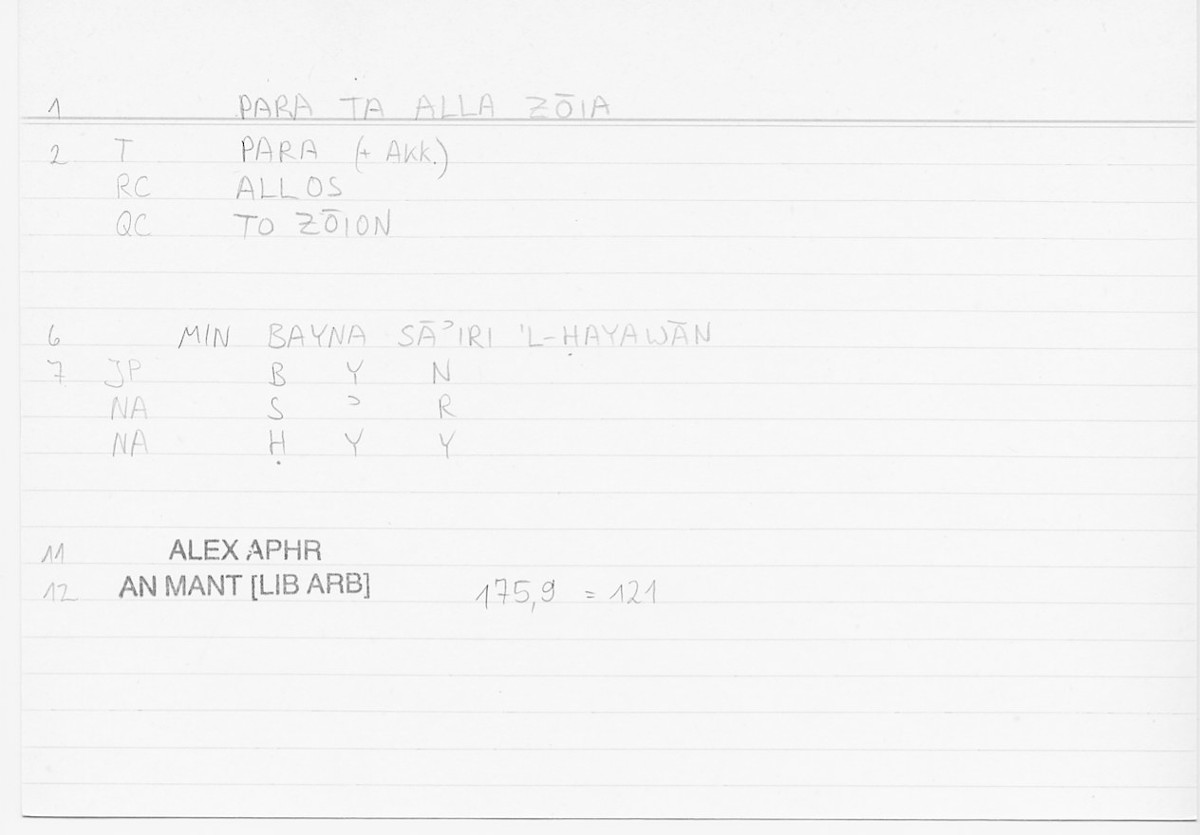 1 PARA TA ALLA ZŌIA
2 T PARA (+ Akk.)
RC ALLOS
QC TO ZŌION
6 MIN BAYNA SĀʾIRI 'L-ḤAYAWĀN
7 JP B Y N
NA S ʾ R
NA Ḥ Y Y
11 ALEX APHR
12 AN MANT [LIB ARB] 175,9 = 121